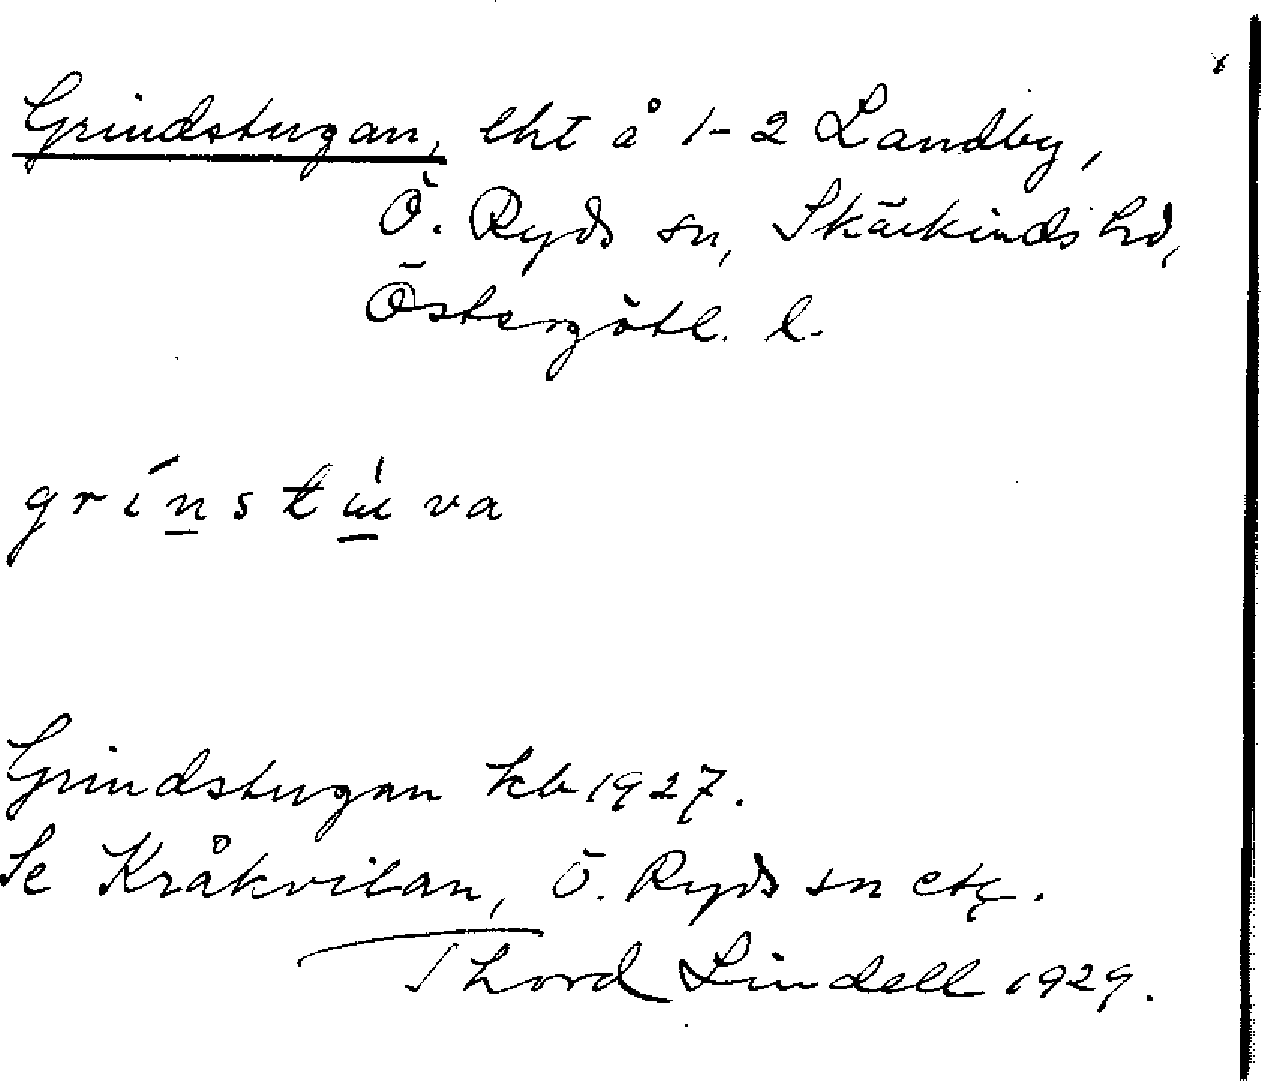 Grindstugan, lht å 1-2 Landby,
Ö. Ryds sn, Skärkinds hd,
Östergötl. l.
grínstɯ́va
Grindstugan kb 1927.
Se Kråkvilan, Ö. Ryds sn etc.
Thord Lindell 1929.